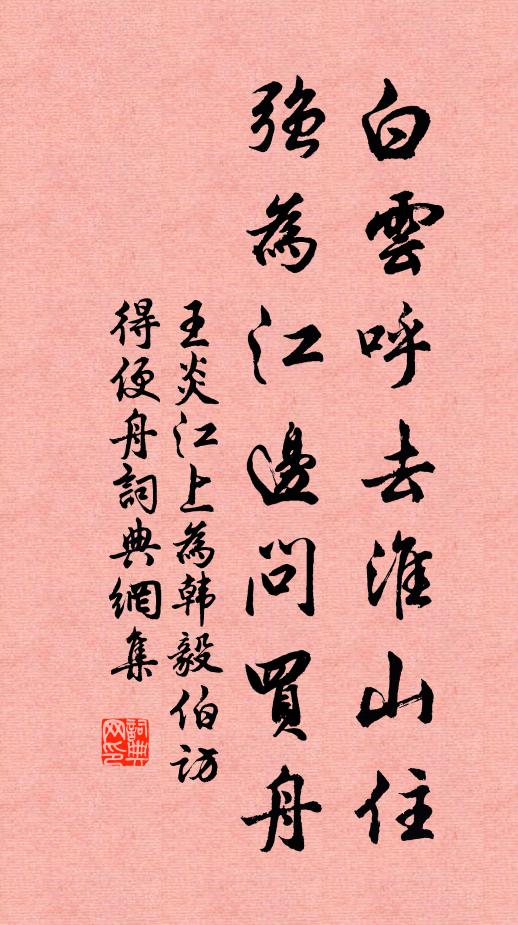 白雲呼去淮山住
強為江邊問買舟
王炎江上為韩毅伯訪
得便舟詞典網集
詞典网印